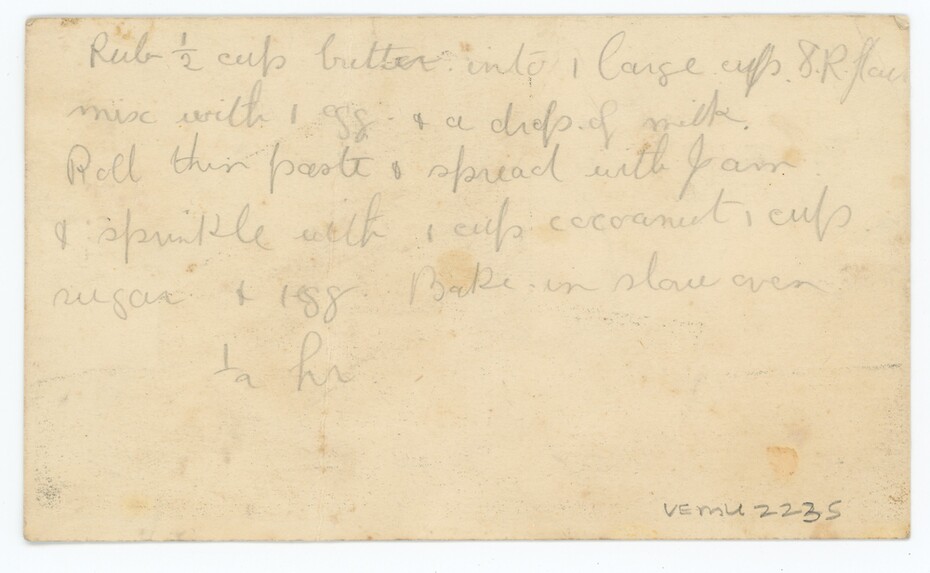 Rub ½ cup butter into 1 large cup S.R. flour
mix with 1 egg & a drop of milk.
Roll thin paste & spread with Jam
& sprinkle with 1 cup cocoanut 1 cup
sugar & 1 egg. Bake in slow oven
½ hr
VEMU 2235